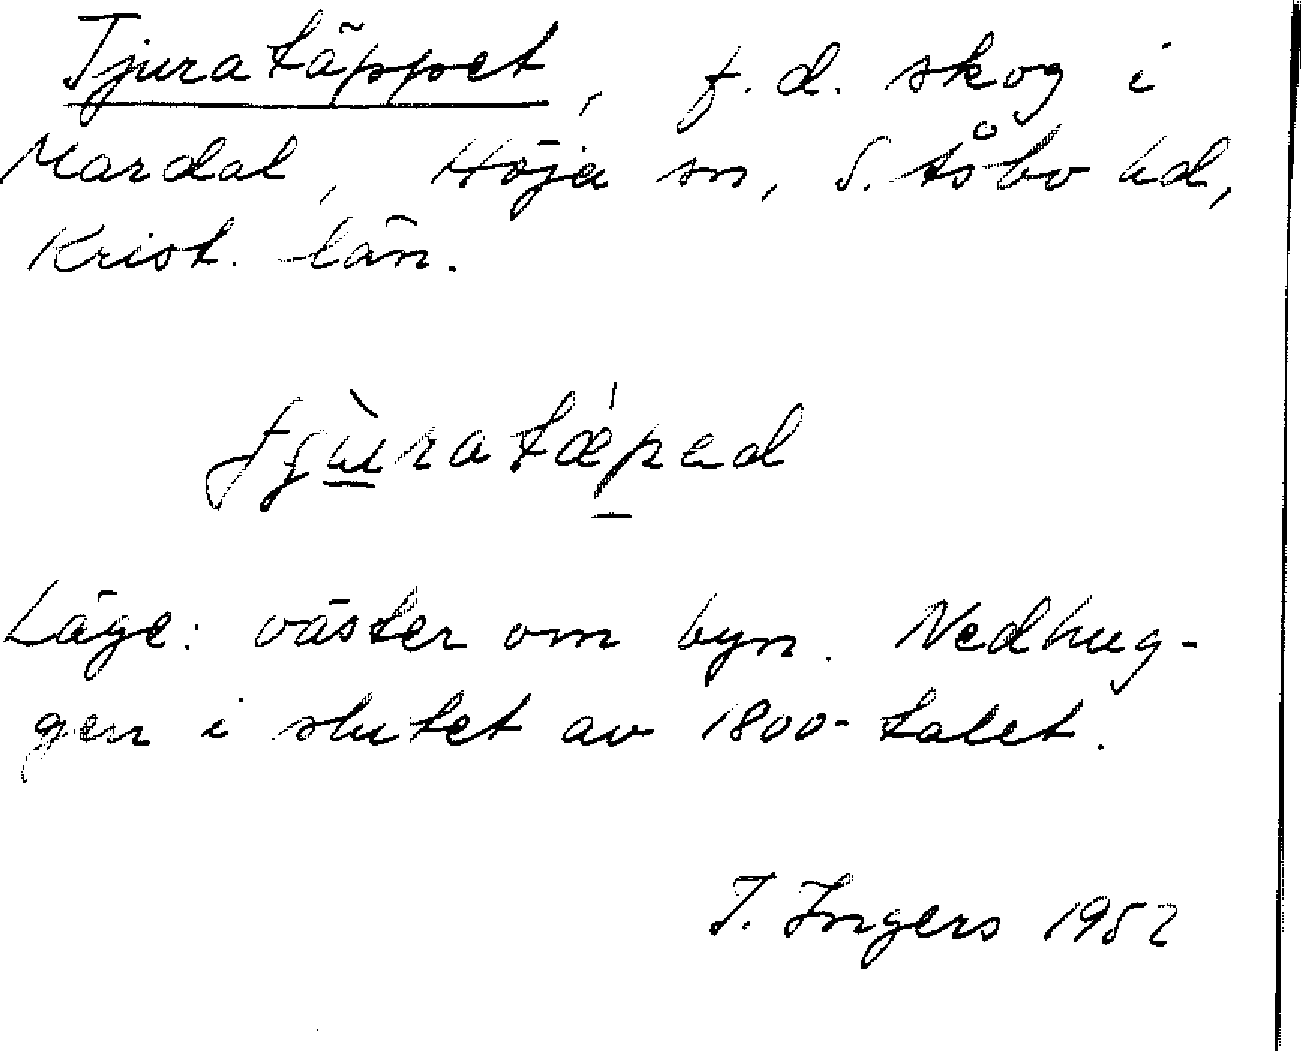 Tjuratäppet, f.d. skog i
Mardal, Höja sn, S. Åsbo hd,
Krist. län.
Läge: väster om byn. Nedhug-
gen i slutet av 1800-talet.
I. Ingers 1952